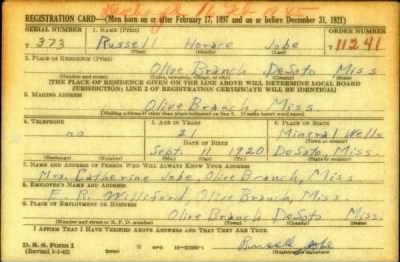 REGISTRATION CARD—(Men born on or after February 17, 1897 and on or before December 31, 1921)
SERIAL NUMBER 1. NAME (Print) ORDER NUMBER
T 373 Russell Horace Jobe T 11241
(First) (Middle) (Last)
2. PLACE OF RESIDENCE (Print)
Olive Branch DeSoto Miss
(Number and street) (Town, township, village, or city) (County) (State)
[THE PLACE OF RESIDENCE GIVEN ON THE LINE ABOVE WILL DETERMINE LOCAL BOARD
JURISDICTION; LINE 2 OF REGISTRATION CERTIFICATE WILL BE IDENTICAL]
3. MAILING ADDRESS
Olive Branch, Miss.
[Mailing address if other than place indicated on line 2. If same insert word same]
4. TELEPHONE 5. AGE IN YEARS 6. PLACE OF BIRTH
no 21 Mineral Wells
DATE OF BIRTH (Town or county)
Sept. 11 1920 DeSoto, Miss.
(Exchange) (Number) (Mo.) (Day) (Yr.) (State or country)
7. NAME AND ADDRESS OF PERSON WHO WILL ALWAYS KNOW YOUR ADDRESS
Mrs. Catherine Jobe, Olive Branch, Miss.
8. EMPLOYER'S NAME AND ADDRESS
E. R. Williford, Olive Branch, Miss.
9. PLACE OF EMPLOYMENT OR BUSINESS
Olive Branch DeSoto Miss.
(Number and street or R. F. D. number) (Town) (County) (State)
I AFFIRM THAT I HAVE VERIFIED ABOVE ANSWERS AND THAT THEY ARE TRUE.
D. S. S. Form 1 GPO Russell Jobe
(Revised 1-1-42) (Registrant's signature)